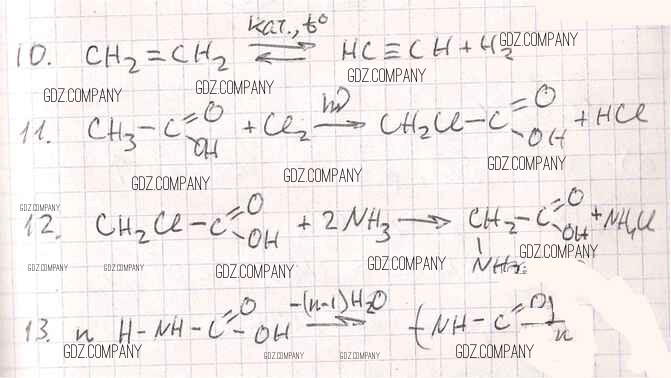 кат., t°
10. CH₂=CH₂ ⇄ HC≡CH + H₂ GDZ.COMPANY
GDZ.COMPANY GDZ.COMPANY GDZ.COMPANY
hν
11. CH₃-C(=O)OH + Cl₂ → CH₂Cl-C(=O)OH + HCl
GDZ.COMPANY GDZ.COMPANY GDZ.COMPANY
GDZ.COMPANY
12. CH₂Cl-C(=O)OH + 2NH₃ → CH₂-C(=O)OH + NH₄Cl
NH₂ GDZ.COMPANY
GDZ.COMPANY GDZ.COMPANY GDZ.COMPANY GDZ.COMPANY
-(n-1)H₂O
13. n H-NH-C(=O)-OH ⇄ (NH-C(=O))n
GDZ.COMPANY GDZ.COMPANY GDZ.COMPANY GDZ.COMPANY